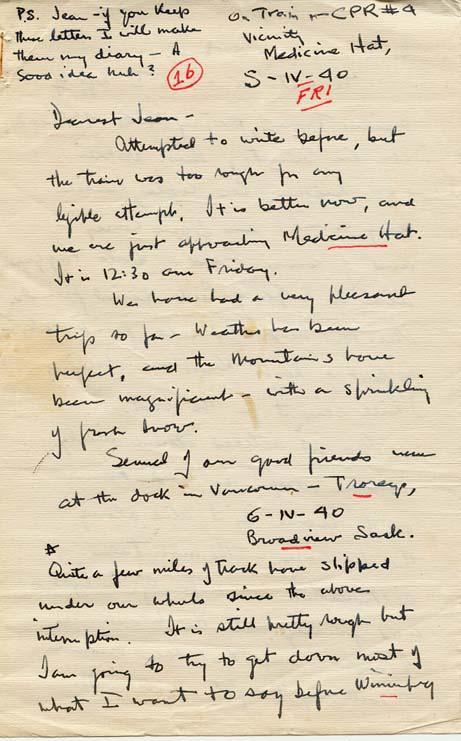 P.S. Jean - if you keep
these letters I will make
them my diary - A
Good idea huh?
16
On Train - CPR #4
Vicinity
Medicine Hat,
5-IV-40
FRI
Dearest Jean -
Attempted to write before, but
the train was too rough for any
legible attempt. It is better now, and
we are just approaching Medicine Hat.
It is 12:30 am Friday.
We have had a very pleasant
trip so far - Weather has been
perfect, and the Mountains have
been magnificent - with a sprinkling
of fresh snow.
Several of our good friends were
at the dock in Vancouver -
6-IV-40
Broadview Sask.
Quite a few miles of track have slipped
under our wheels since the above
interruption. It is still pretty rough but
I am going to try to get down most of
what I want to say before Winnipeg